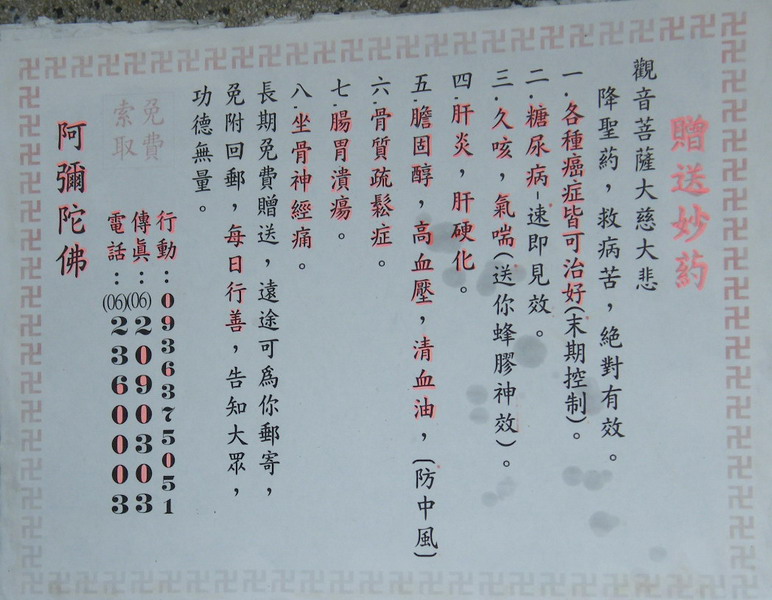 贈送妙药
觀音菩薩大慈大悲
降聖药，救病苦，絕對有效。
一．各種癌症皆可治好(末期控制)。
二．糖尿病-速即見效。
三．久咳，氣喘(送你蜂膠神效)。
四．肝炎，肝硬化。
五．膽固醇，高血壓，清血油，(防中風)
六．骨質疏鬆症。
七．腸胃潰瘍。
八．坐骨神經痛。
長期免費贈送，遠途可為你郵寄，
免附回郵，每日行善，告知大眾，
功德無量。
免費
索取
行動：0936375051
傳真：(06)2090303
電話：(06)2360003
阿彌陀佛